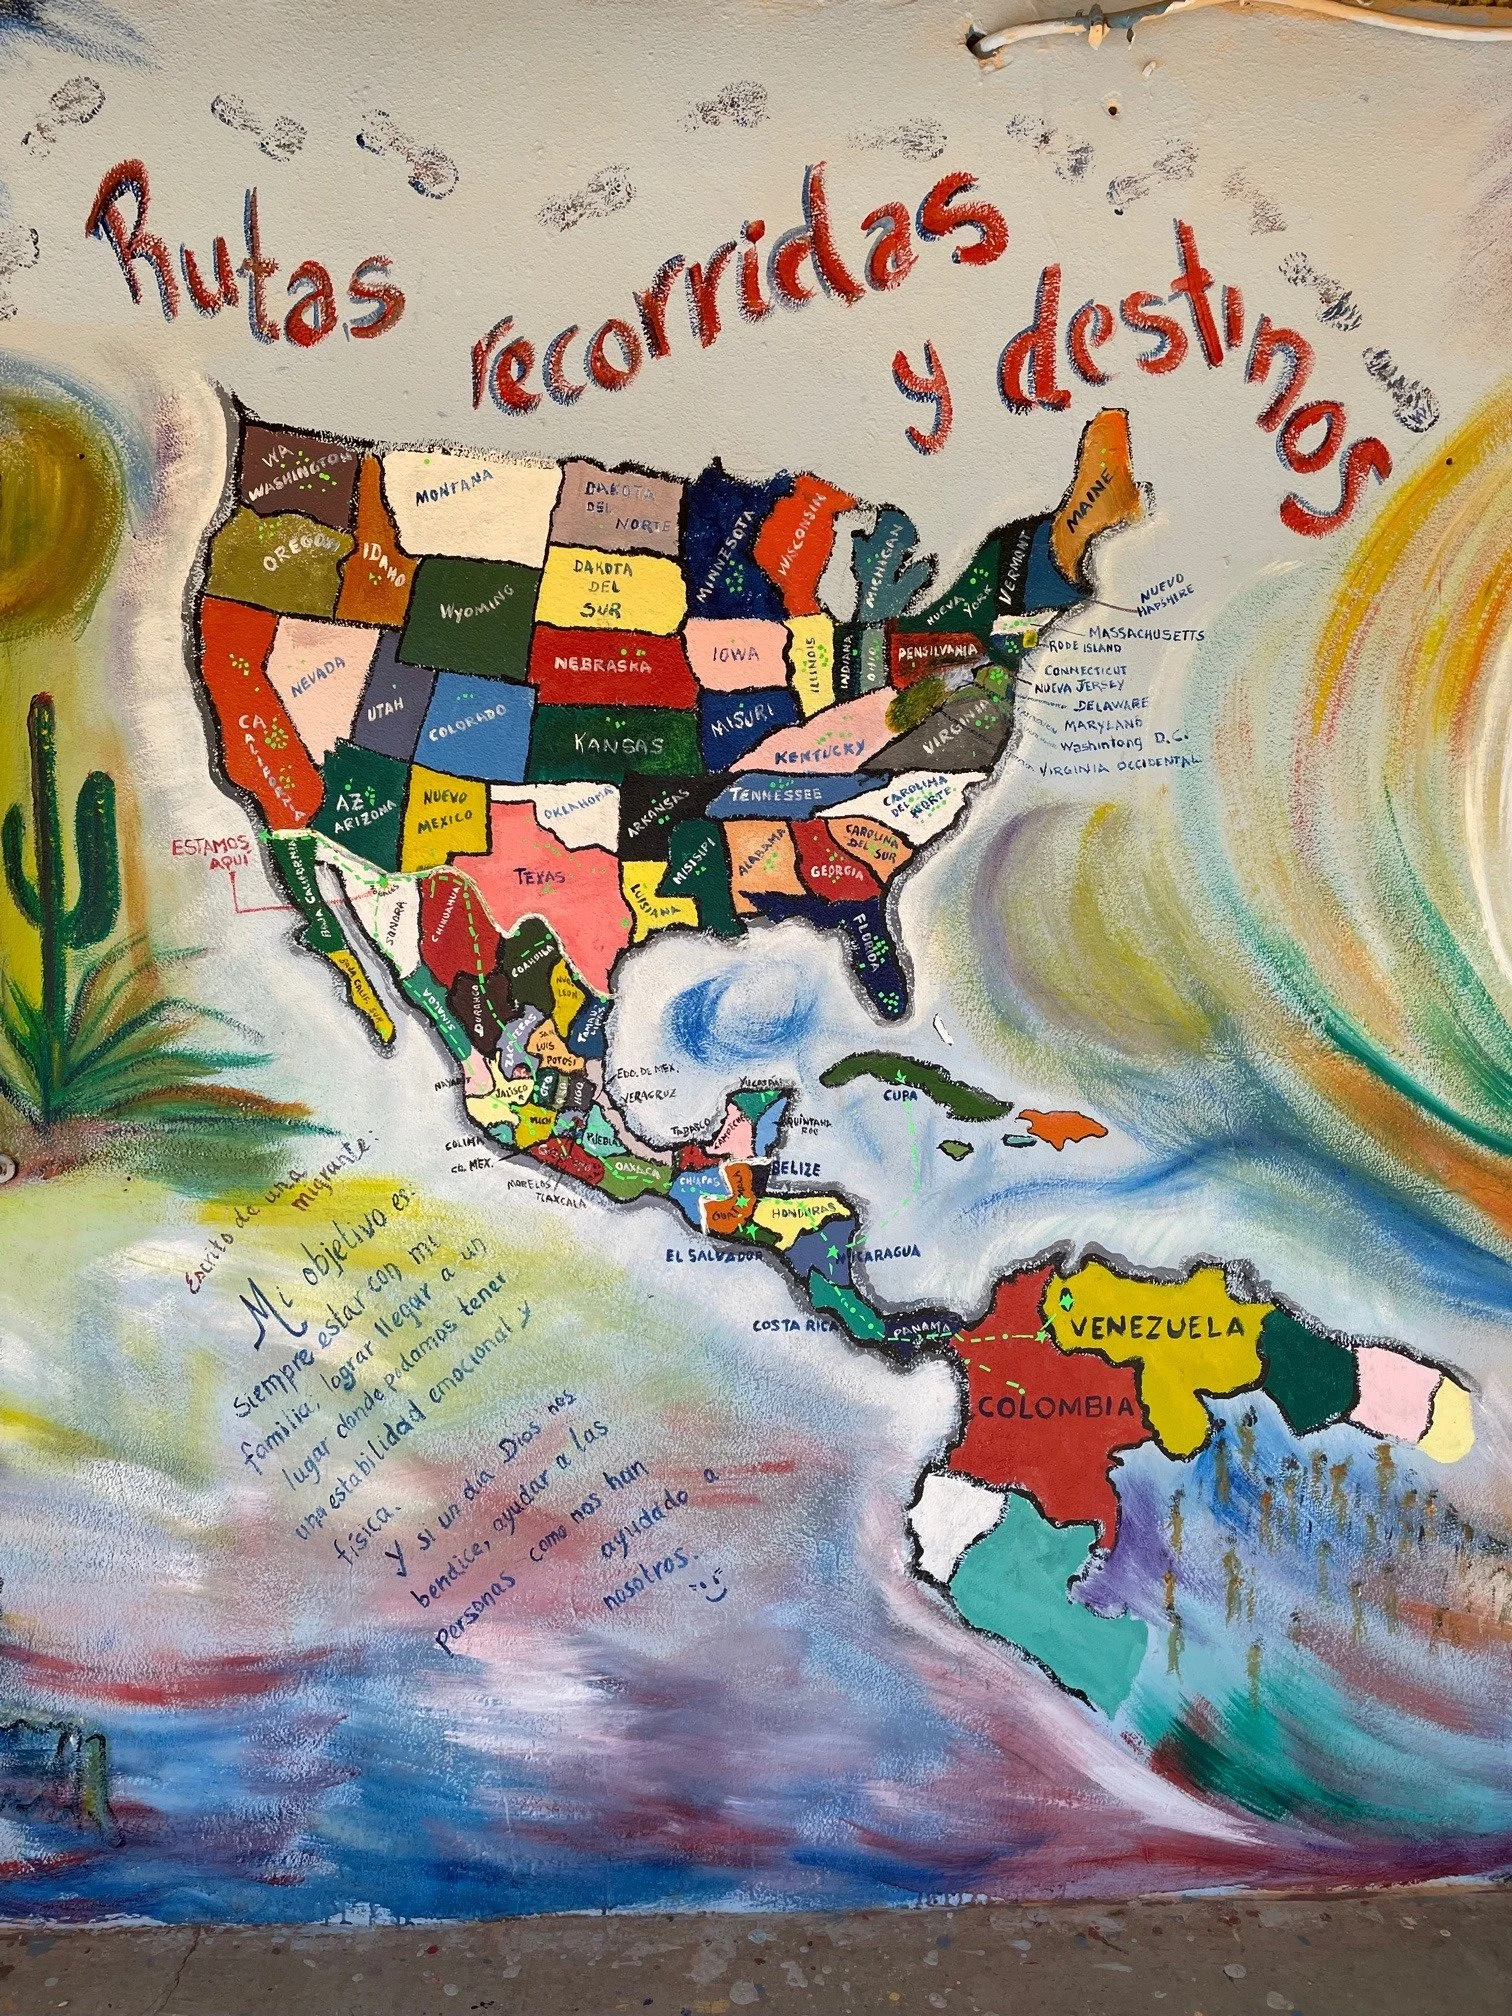 Rutas recorridas
y destinos
WA
WASHINGTON
MONTANA
DAKOTA
DEL
NORTE
MINNESOTA
WISCONSIN
MICHIGAN
MAINE
OREGON
IDAHO
WYOMING
DAKOTA
DEL
SUR
NUEVA
YORK
VERMONT
NUEVO
HAPSHIRE
MASSACHUSETTS
RODE ISLAND
CONNECTICUT
NUEVA JERSEY
DELAWARE
MARYLAND
Washintong D.C.
VIRGINIA OCCIDENTAL
NEVADA
UTAH
COLORADO
NEBRASKA
IOWA
ILLINOIS
INDIANA
OHIO
PENSILVANIA
CALIFORNIA
KANSAS
MISURI
KENTUCKY
VIRGINIA
AZ
ARIZONA
NUEVO
MEXICO
OKLAHOMA
ARKANSAS
TENNESSEE
CAROLINA
DEL
NORTE
TEXAS
LUISIANA
MISISIPI
ALABAMA
GEORGIA
CAROLINA
DEL SUR
FLORIDA
ESTAMOS
AQUÍ
BAJA CALIFORNIA
BAJA CALIF. SUR
SONORA
CHIHUAHUA
COAHUILA
NUEVO
LEON
SINALOA
DURANGO
SAN
LUIS
POTOSI
NAYARIT
JALISCO
GTO
EDO. DE MEX.
VERACRUZ
COLIMA
MICH
CD. MEX.
PUEBLA
MORELOS
TLAXCALA
OAXACA
TABASCO
CAMPECHE
YUCATAN
QUINTANA
ROO
CHIAPAS
BELIZE
CUPA
HONDURAS
EL SALVADOR
NICARAGUA
COSTA RICA
PANAMA
VENEZUELA
COLOMBIA
Escrito de una
migrante:
Mi objetivo es:
siempre estar con mi
familia, lograr llegar a un
lugar donde podamos tener
una estabilidad emocional y
física.
Y si un dia Dios nos
bendice, ayudar a las
personas como nos han
ayudado a
nosotros.